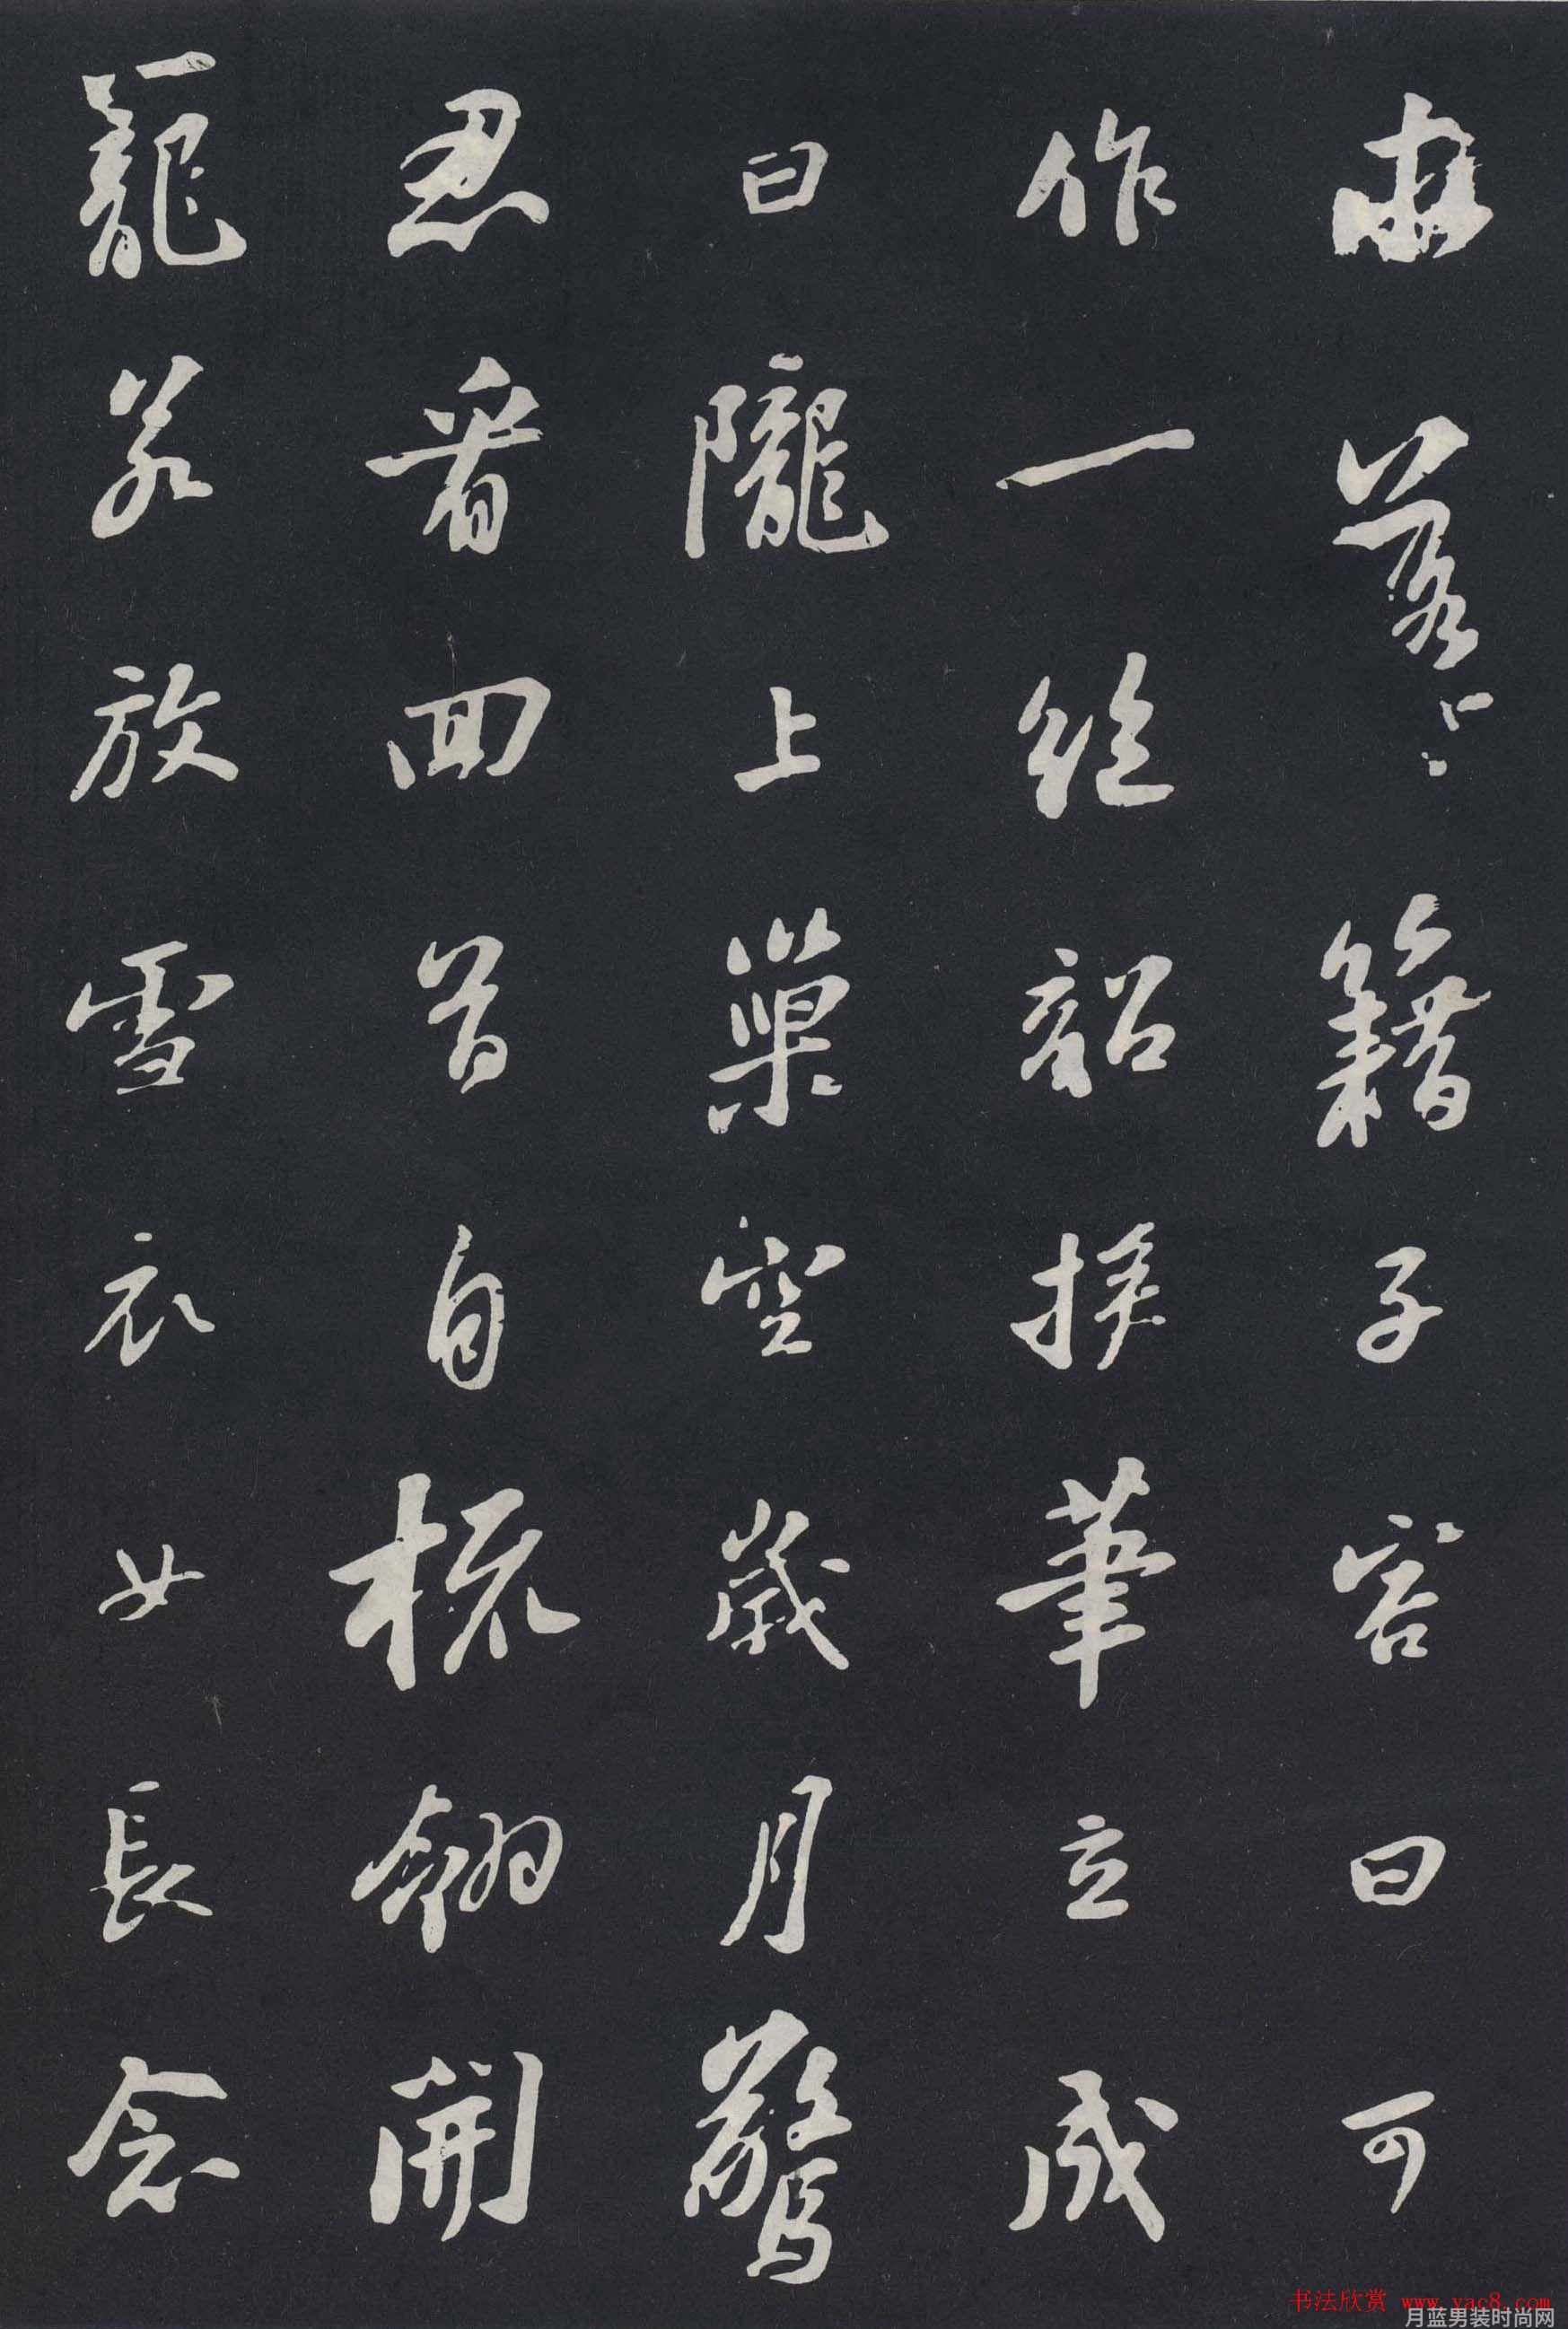 求落籍子容曰可
作一絕韶援筆立成
曰隴上巢空歲月驚
忍看回首自梳翎開
籠若放雪衣女長念
书法欣赏 www.yac8.com
月蓝男装时尚网